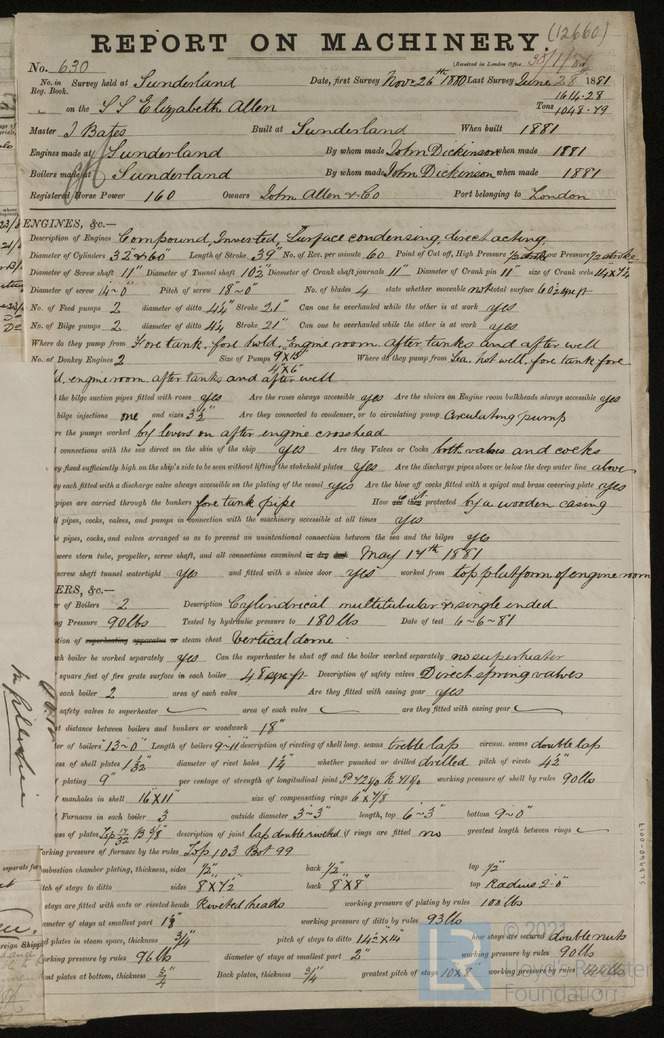 (12660)
REPORT ON MACHINERY.
No. 630 (Received in London Office 30/1/81
No. in Reg. Book. Survey held at Sunderland Date, first Survey Nov 26th 1880 Last Survey June 28 1881
on the S S Elizabeth Allen Tons 1614.28 1048.79
Master J Bates Built at Sunderland When built 1881
Engines made at Sunderland By whom made John Dickinson when made 1881
Boilers made at Sunderland By whom made John Dickinson when made 1881
Registered Horse Power 160 Owners John Allen & Co Port belonging to London
ENGINES, &c.—
Description of Engines Compound, Inverted, Surface condensing, direct acting,
Diameter of Cylinders 32" & 60" Length of Stroke 39" No. of Rev. per minute 60 Point of Cut off, High Pressure 1/2 stroke Low Pressure 1/2 stroke
Diameter of Screw shaft 11" Diameter of Tunnel shaft 10 1/2 Diameter of Crank shaft journals 11" Diameter of Crank pin 11" size of Crank webs 14" x 7 1/2
Diameter of screw 14~0" Pitch of screw 18~0" No. of blades 4 state whether moveable not total surface 60 1/2 sq ft
No. of Feed pumps 2 diameter of ditto 4 1/4" Stroke 21" Can one be overhauled while the other is at work yes
No. of Bilge pumps 2 diameter of ditto 4 1/4 Stroke 21" Can one be overhauled while the other is at work yes
Where do they pump from Fore tank. fore hold. Engine room. After tanks and after well
No. of Donkey Engines 2 Size of Pumps 9" x 4" x 6" Where do they pump from Sea, hot well, fore tank fore
d. engine room. after tanks and after well
the bilge suction pipes fitted with roses yes Are the roses always accessible yes Are the sluices on Engine room bulkheads always accessible yes
bilge injections one and sizes 3 1/2" Are they connected to condenser, or to circulating pump Circulating pump
re the pumps worked by levers on after engine crosshead
l connections with the sea direct on the skin of the ship yes Are they Valves or Cocks both valves and cocks
ey fixed sufficiently high on the ship's side to be seen without lifting the stokehold plates yes Are the discharge pipes above or below the deep water line above
ey each fitted with a discharge valve always accessible on the plating of the vessel yes Are the blow off cocks fitted with a spigot and brass covering plate yes
pipes are carried through the bunkers fore tank pipe How protected by a wooden casing
l pipes, cocks, valves, and pumps in connection with the machinery accessible at all times yes
e pipes, cocks, and valves arranged so as to prevent an unintentional connection between the sea and the bilges yes
were stern tube, propeller, screw shaft, and all connections examined in dry dock May 14th 1881
screw shaft tunnel watertight yes and fitted with a sluice door yes worked from top platform of engine room
ERS, &c.—
er of Boilers 2 Description Cylindrical multitubular & single ended
ng Pressure 90 lbs Tested by hydraulic pressure to 180 lbs Date of test 6~6~81
tion of superheating apparatus or steam chest Vertical dome
ch boiler be worked separately yes Can the superheater be shut off and the boiler worked separately no superheater
square feet of fire grate surface in each boiler 48 sq ft Description of safety valves Direct spring valves
each boiler 2 area of each valve Are they fitted with easing gear yes
safety valves to superheater area of each valve are they fitted with easing gear
st distance between boilers and bunkers or woodwork 18"
er of boilers 13~0" Length of boilers 9~11" description of riveting of shell long. seams treble lap circum. seams double lap
ess of shell plates 1 1/32 diameter of rivet holes 1 1/4" whether punched or drilled drilled pitch of rivets 4 1/2"
f plating 9" per centage of strength of longitudinal joint P 72% R 71% working pressure of shell by rules 90 lbs
f manholes in shell 16" x 11" size of compensating rings 6" x 7/8
f Furnaces in each boiler 3 outside diameter 3~3" length, top 6~3" bottom 9~0"
ess of plates Top 17/32 B 5/8" description of joint lap double riveted if rings are fitted no greatest length between rings
orking pressure of furnace by the rules Top 103 Bot 99
mbustion chamber plating, thickness sides 1/2" back 1/2" top 1/2
tch of stays to ditto sides 8" x 7 1/2 back 8" x 8" top Radius 2~0"
stays are fitted with nuts or riveted heads Riveted heads working pressure of plating by rules 100 lbs
ameter of stays at smallest part working pressure of ditto by rules 93 lbs
d plates in steam space, thickness 3/4" pitch of stays to ditto how stays are secured double nuts
orking pressure by rules 96 lbs diameter of stays at smallest part 2" working pressure by rules 90 lbs
ont plates at bottom, thickness 3/4" Back plates, thickness 3/4" greatest pitch of stays 10" x 8" working pressure by rules
separate for
oreign Shipp
SLD960-0017
© 2021
Lloyd's Register
Foundation
LR